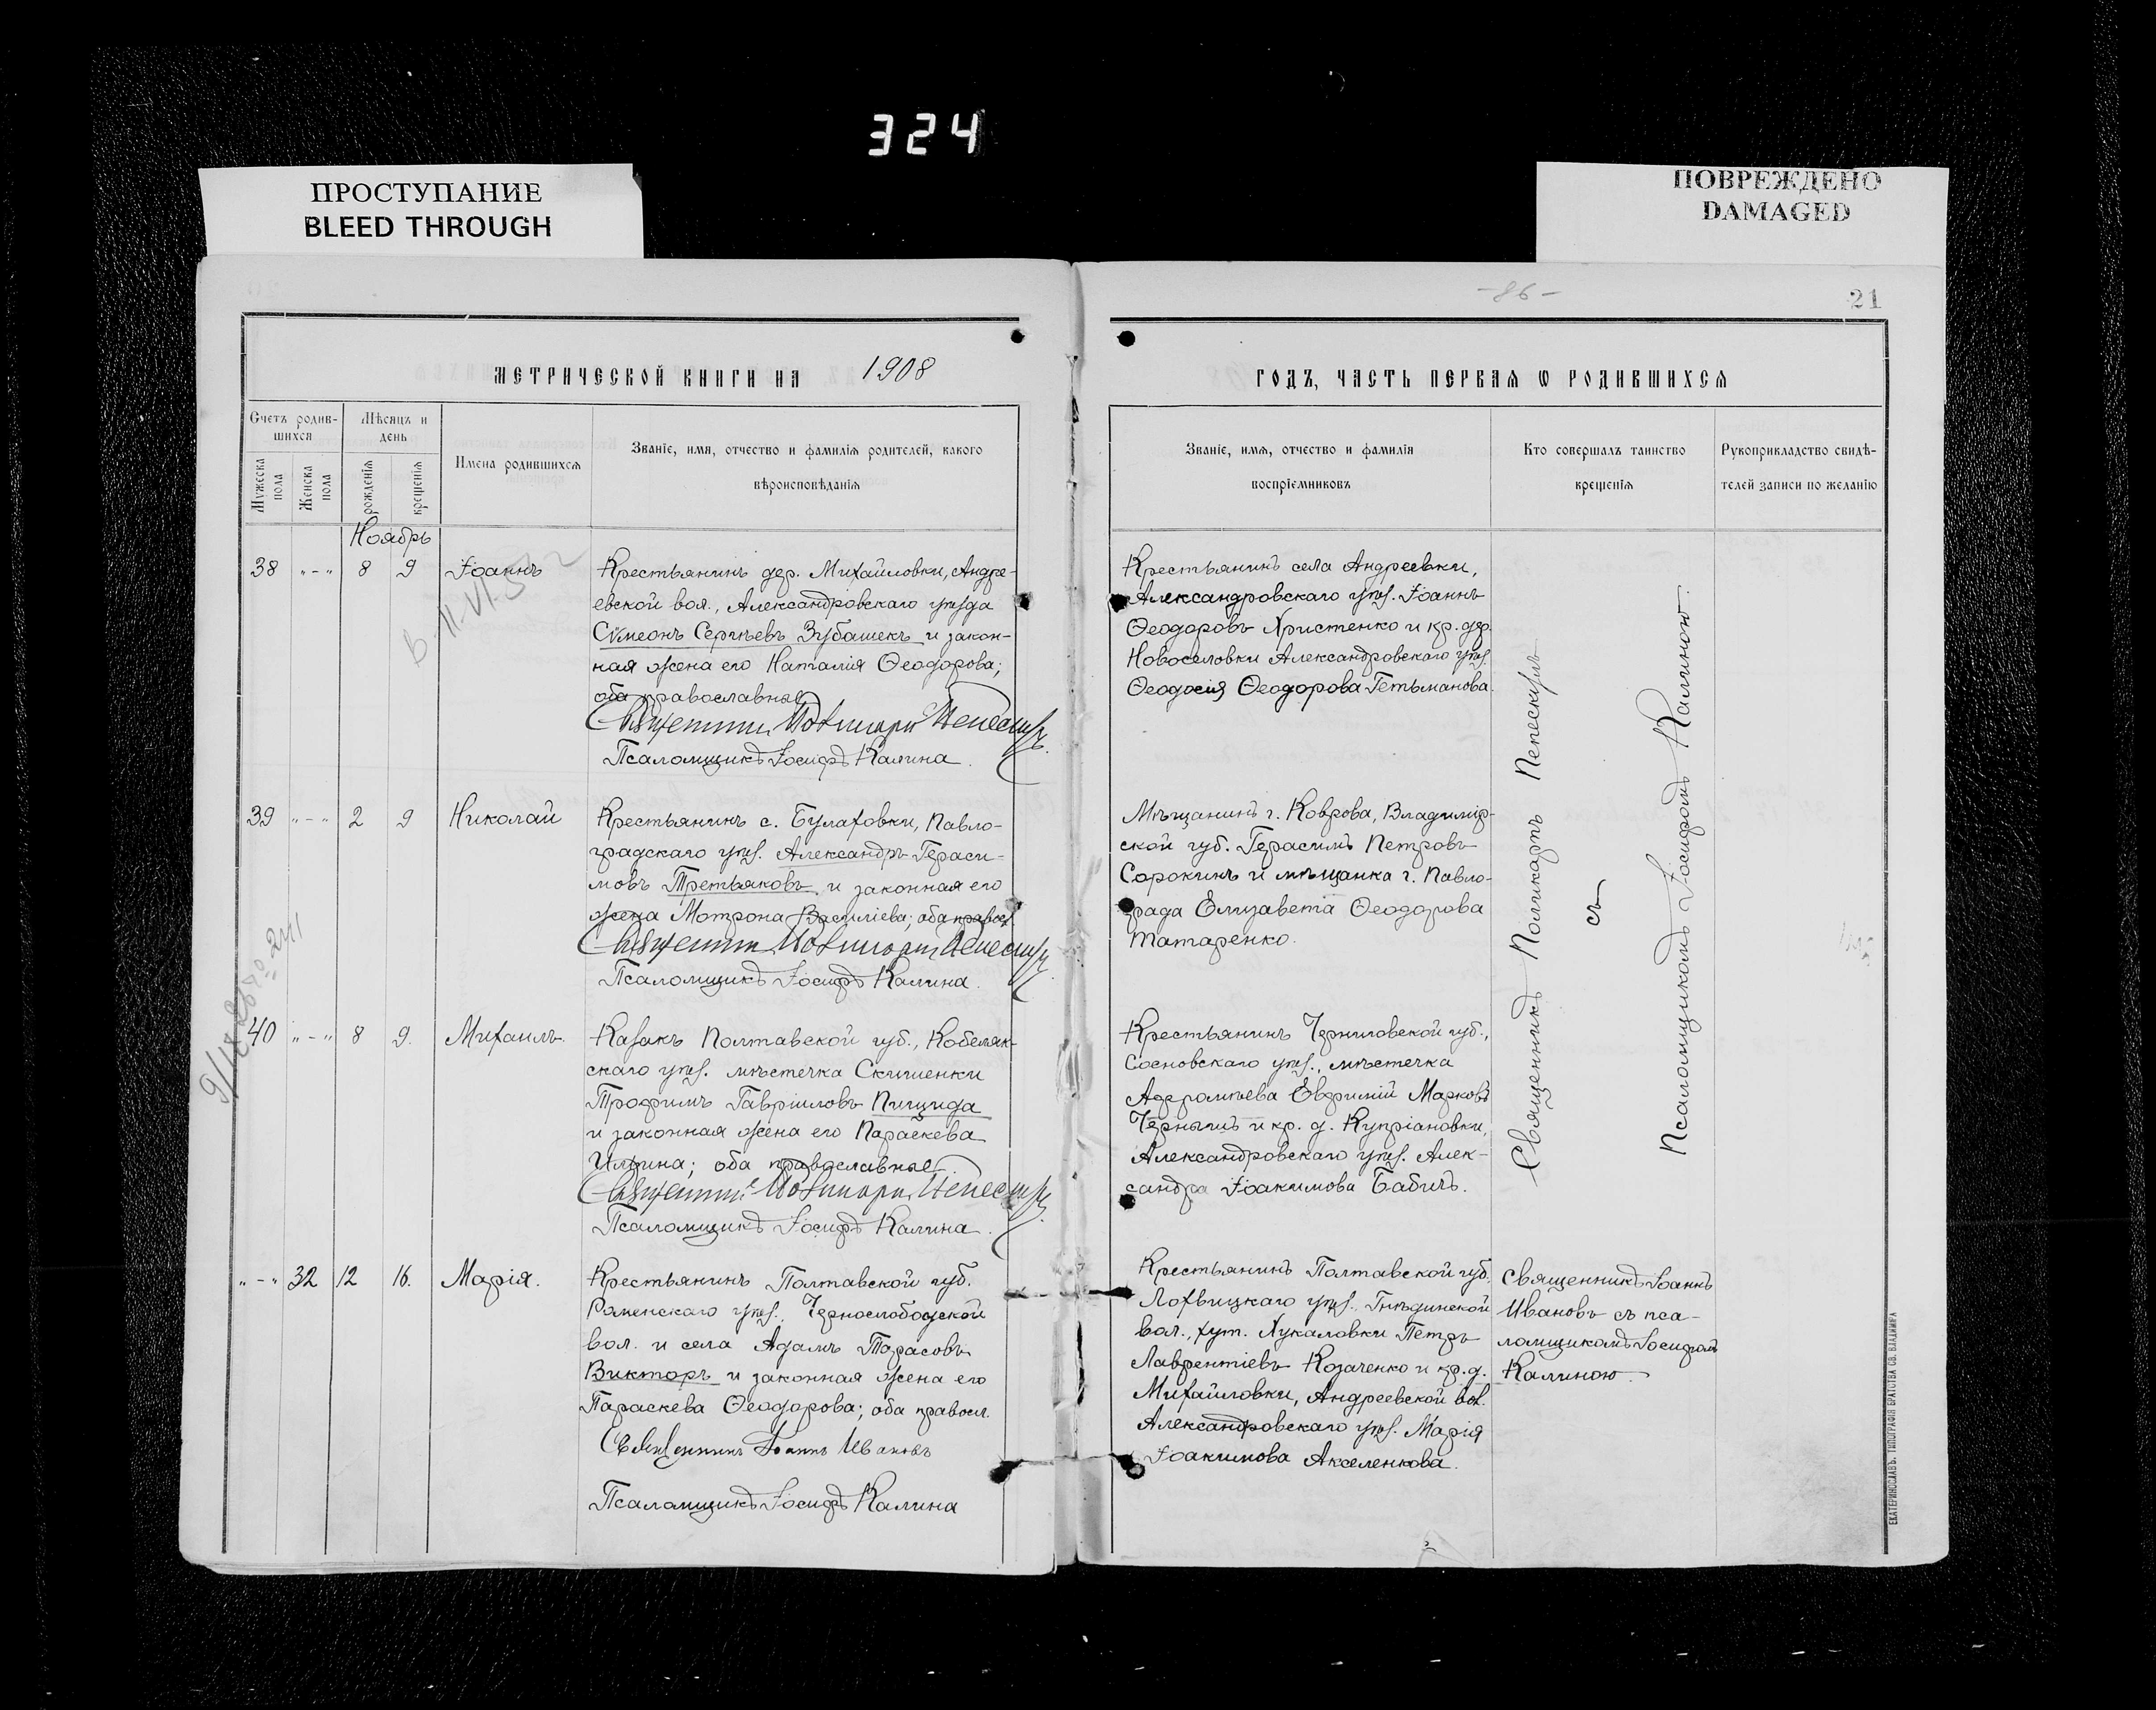 324
ПРОСТУПАНИЕ
BLEED THROUGH
ПОВРЕЖДЕНО
DAMAGED
-86-
21
МЕТРИЧЕСКОЙ КНИГИ НА 1908
Счетъ родив-
шихся
Мужеска
пола
Женска
пола
Мѣсяцъ и
день
рожденія
крещенія
Имена родившихся
Званіе, имя, отчество и фамилія родителей, какого
вѣроисповѣданія
Ноябрь
38 „-„ 8 9 Іоаннъ
Крестьянинъ дер. Михайловки, Андре-
евской вол., Александровскаго уѣзда
Сѵмеонъ Сергѣевъ Зубашекъ и закон-
ная жена его Наталія Ѳеодорова;
оба православные
Священникъ Поликарпъ Пепескулъ
Псаломщикъ Іосифъ Калина.
39 „-„ 2 9 Николай
Крестьянинъ с. Булаховки, Павло-
градскаго уѣз. Александръ Гераси-
мовъ Третьяковъ и законная его
жена Мотрона Василіева; оба правосл.
Священникъ Поликарпъ Пепескулъ
Псаломщикъ Іосифъ Калина.
40 „-„ 8 9. Михаилъ.
Казакъ Полтавской губ., Кобеляк-
скаго уѣз. мѣстечка
Трофимъ Гавріиловъ Пищида
и законная жена его Параскева
Ильина; оба православные.
Священникъ Поликарпъ Пепескулъ
Псаломщикъ Іосифъ Калина.
„-„ 32 12 16. Марія.
Крестьянинъ Полтавской губ.
Роменскаго уѣз., Чернослободской
вол. и села Адамъ Тарасовъ
Викторъ и законная жена его
Параскева Ѳеодорова; оба правосл.
Священникъ Іоаннъ Ивановъ
Псаломщикъ Іосифъ Калина
ГОДЪ, ЧАСТЬ ПЕРВАЯ Ѡ РОДИВШИХСЯ
Званіе, имя, отчество и фамилія
воспріемниковъ
Кто совершалъ таинство
крещенія
Рукоприкладство свидѣ-
телей записи по желанію
Крестьянинъ села Андреевки,
Александровскаго уѣз. Іоаннъ
Ѳеодоровъ Христенко и кр. дер.
Новоселовки Александровскаго уѣз.
Ѳеодосія Ѳеодорова Гетьманова.
Мѣщанинъ г. Коврова, Владимір-
ской губ. Герасимъ Петровъ
Сорокинъ и мѣщанка г. Павло-
града Елизавета Ѳеодорова
Татаренко.
Крестьянинъ Черниговской губ.,
Сосновскаго уѣз., мѣстечка
Евфимій Марковъ
Чернышъ и кр. д. Купріановки,
Александровскаго уѣз. Алек-
сандра Іоакимова Бабичъ.
Священникъ Поликарпъ Пепескулъ
съ
Псаломщикомъ Іосифомъ Калиною.
Крестьянинъ Полтавской губ.
Лохвицкаго уѣз., Гнѣдинской
вол., хут. Лукаловки Петръ
Лаврентіевъ Козаченко и кр. д.
Михайловки, Андреевской вол.
Александровскаго уѣз. Марія
Іоакимова Акселенкова.
Священникъ Іоаннъ
Ивановъ съ пса-
ломщикомъ Іосифомъ
Калиною.
ЕКАТЕРИНОСЛАВЪ. ТИПОГРАФІЯ БРАТСТВА СВ. ВЛАДИМІРА